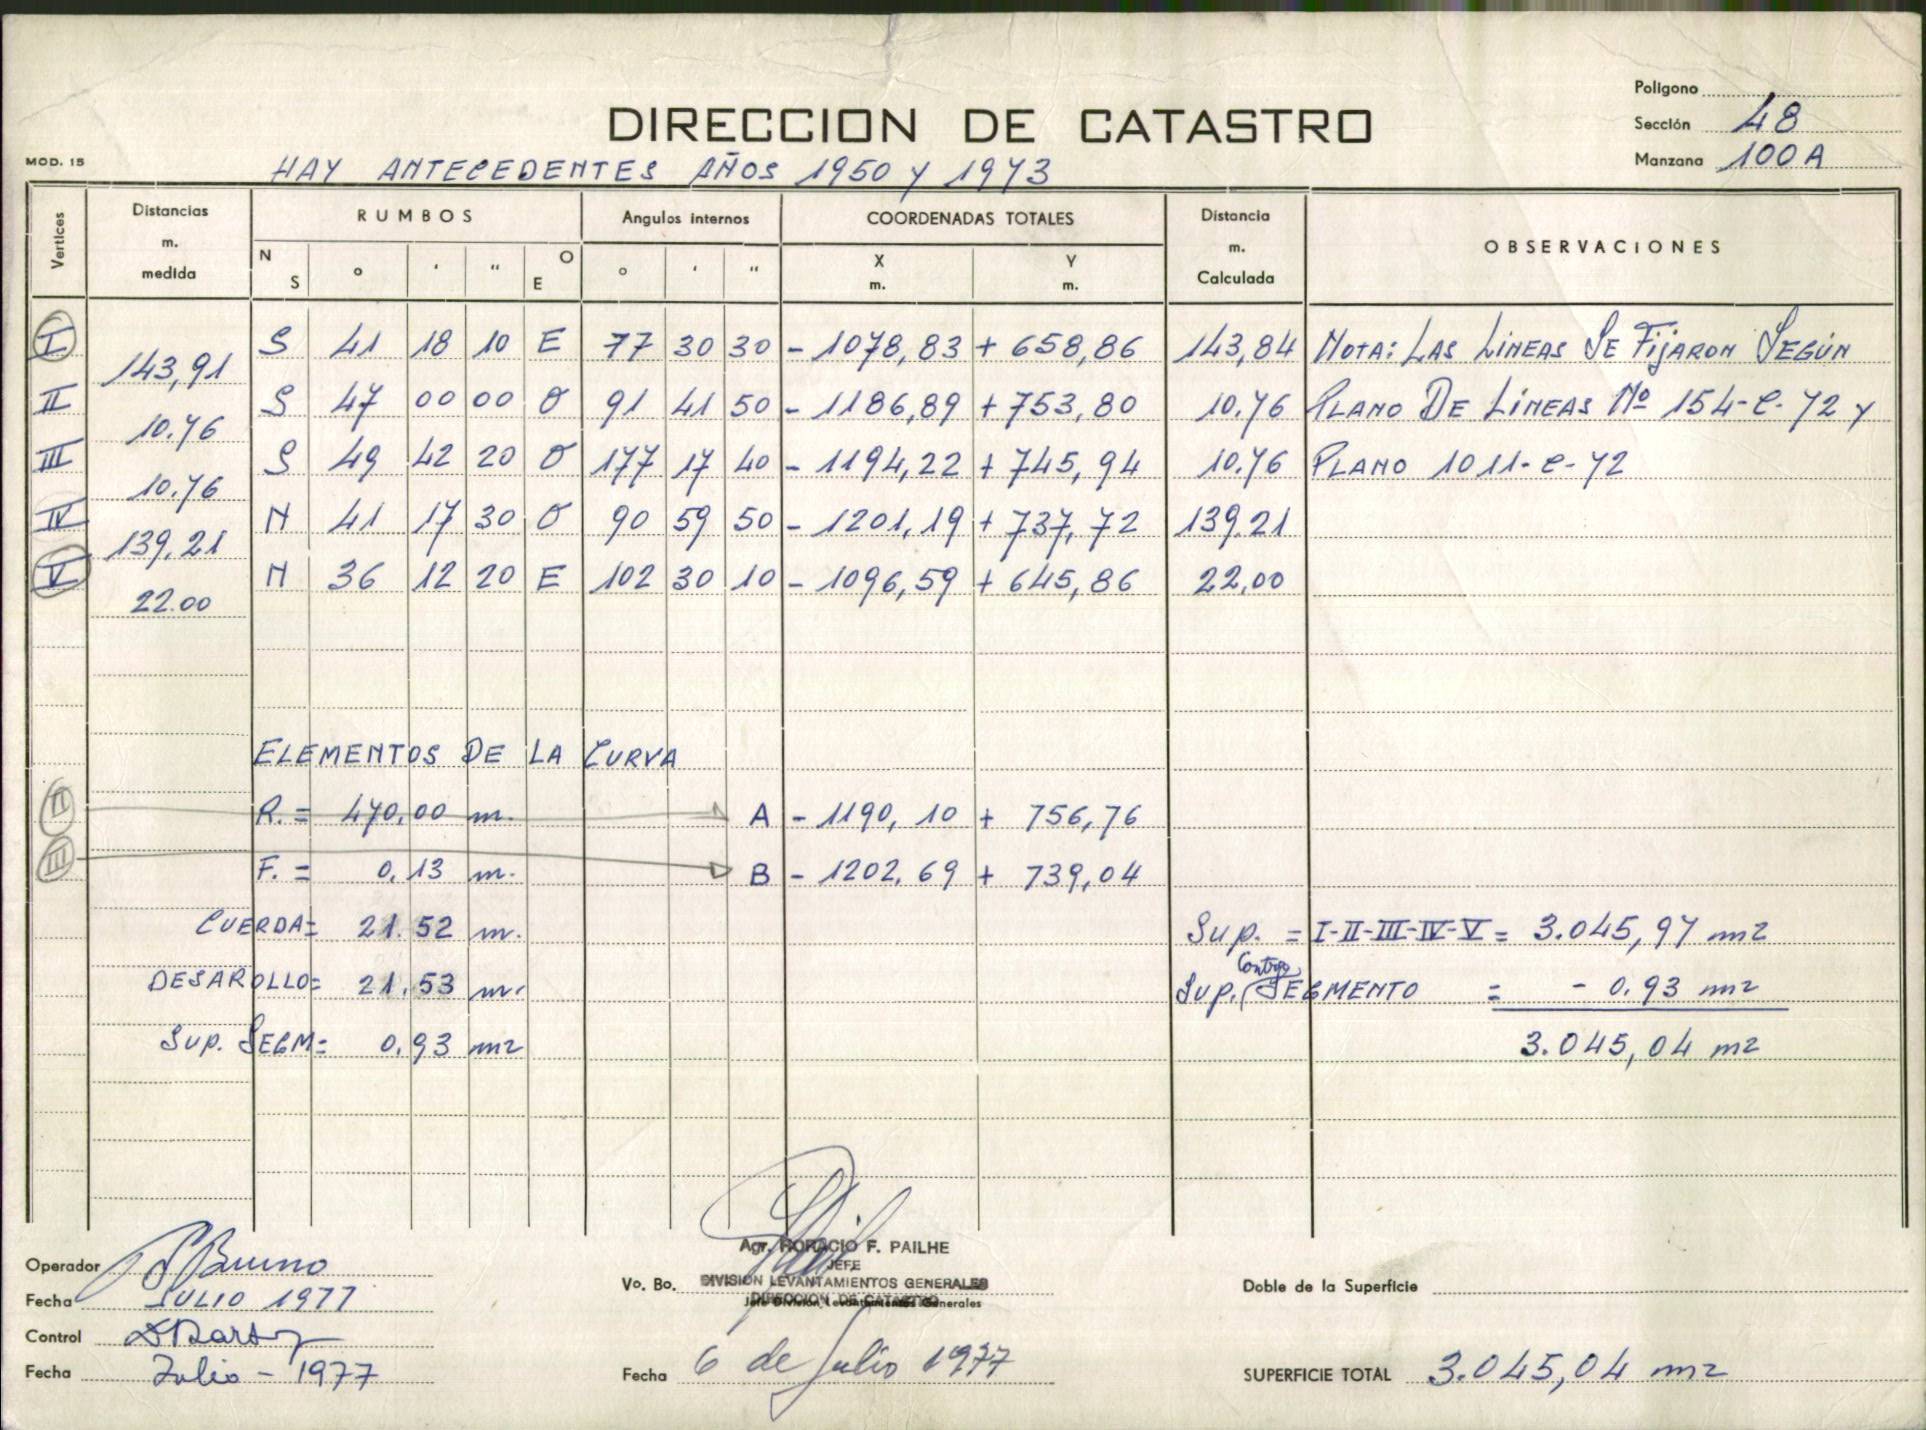 Poligono
DIRECCION DE CATASTRO
Sección 48
MOD. 15
HAY ANTECEDENTES AÑOS 1950 y 1973
Manzana 100A
Vertices
Distancias m. medida
RUMBOS
Angulos internos
COORDENADAS TOTALES
Distancia m. Calculada
OBSERVACIONES
N S ° ' " O E
° ' "
X m. Y m.
I S 41 18 10 E 77 30 30 - 1078,83 + 658,86 143,84 NOTA: LAS LINEAS SE FIJARON SEGÚN
143,91
II S 47 00 00 O 91 41 50 - 1186,89 + 753,80 10.76 PLANO DE LINEAS Nº 154-C-72 y
10.76
III S 49 42 20 O 177 17 40 - 1194,22 + 745,94 10.76 PLANO 1011-C-72
10.76
IV N 41 17 30 O 90 59 50 - 1201,19 + 737,72 139.21
139.21
V N 36 12 20 E 102 30 10 - 1096,59 + 645,86 22,00
22.00
ELEMENTOS DE LA CURVA
II R. = 470,00 m. A - 1190,10 + 756,76
III F. = 0,13 m. B - 1202.69 + 739,04
CUERDA= 21.52 m. Sup. = I-II-III-IV-V = 3.045,97 m2
DESAROLLO= 21.53 m. Sup. Contra SEGMENTO = - 0.93 m2
Sup. SEGM= 0,93 m2 3.045,04 m2
Agr. HORACIO F. PAILHE
Operador Bruno
JEFE
Vo. Bo. DIVISION LEVANTAMIENTOS GENERALES
Doble de la Superficie
Fecha JULIO 1977
DIRECCION DE CATASTRO
Jefe División Levantamientos Generales
Control
Fecha Julio - 1977
Fecha 6 de Julio 1977
SUPERFICIE TOTAL 3.045,04 m2